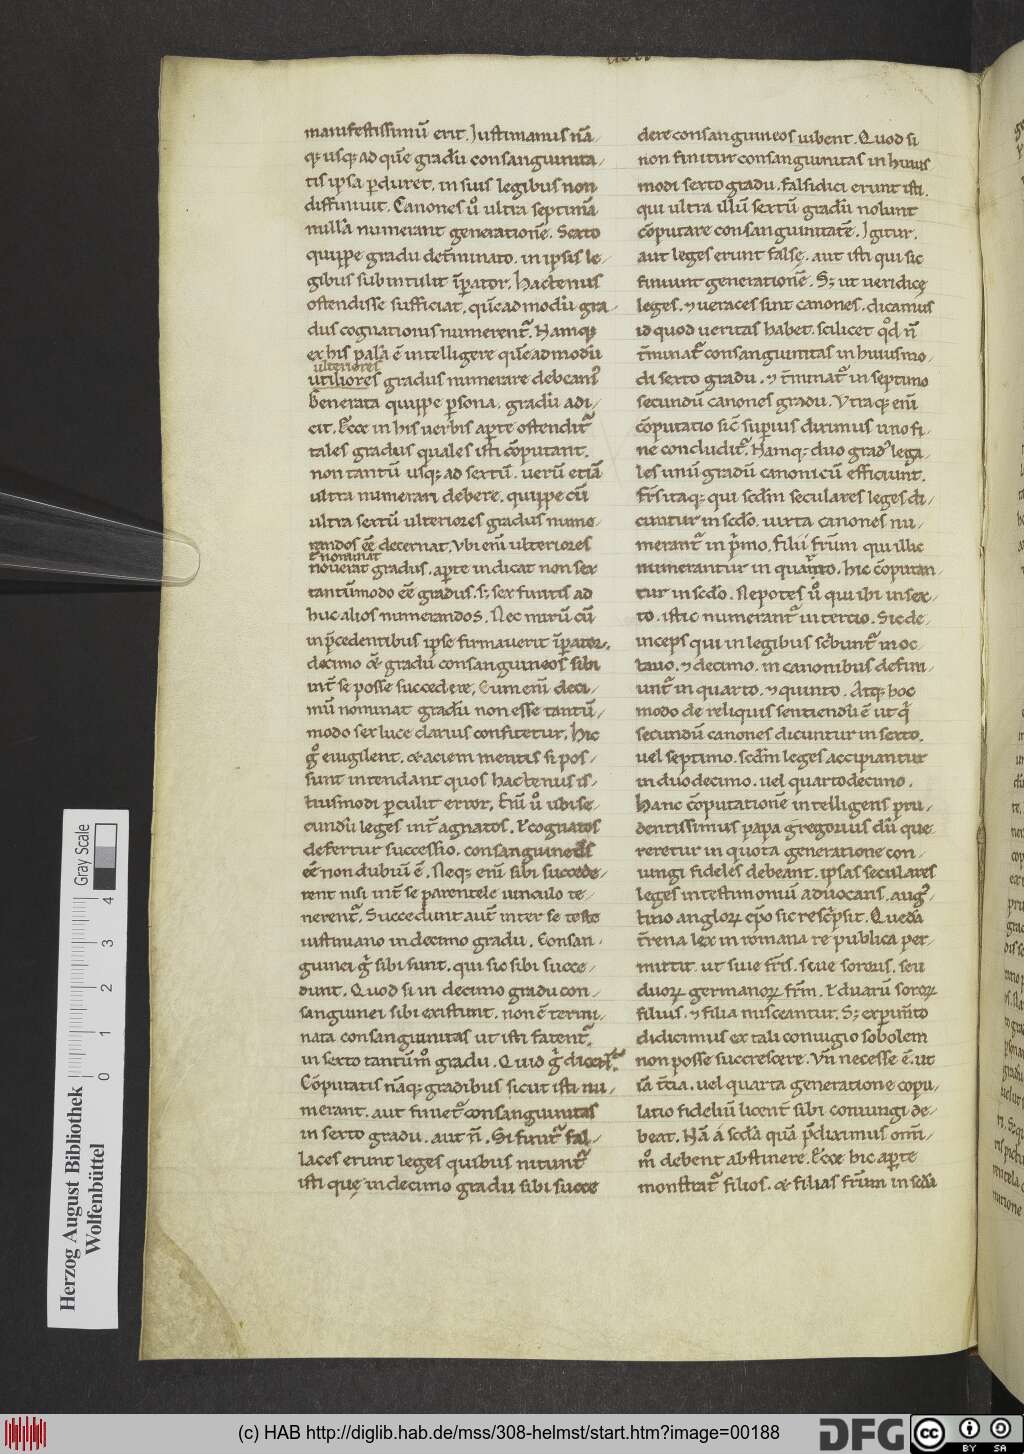 manifestissimū erit. Justinianus nā-
q; usq; ad quē gradū consanguinita-
tis ipsa p̱duret. in suis legibus non
diffiniuit. Canones ů ultra septimā
nullā numerant generationē. Sexto
quippe gradu det̄minato. in ipsis le-
gibus subintulit īperator. Hactenus
ostendisse sufficiat. quēadmodū gra-
dus cognationis numerent᷑. Namq;
ex his palā ē intelligere quēadmodū
ulteriores
utiliores gradus numerare debeam᷒
Generata quippe p̱sona. gradū adi-
cit. Ecce in his uerbis ap̱te ostendit᷑
tales gradus quales isti cōputant.
non tantū usq; ad sextū. uerū etiā
ultra numerari debere. quippe cū
ultra sextū ulteriores gradus nume-
randos eē decernat. Vbi eni̅ ulteriores
ł nominat
nouerat gradus. ap̱te indicat non sex
tantūmodo eē gradus. s; sex finitis ad
huc alios numerandos. Nec mirū cū
in p̄cedentibus ipse firmauerit īperator.
decimo &̄ gradu consanguineos sibi
int̄ se posse succedere. Cum eni̅ deci-
mū nominat gradū non esse tantū-
modo sex luce clarius confitetur. Hic
g̊ euigilent. & aciem mentis si pos-
sunt intendant quos hactenus is-
tiusmodi p̱culit error. Eni̅ ů ubi se-
cundū leges int̄ agnatos. & cognatos
defertur successio. consanguineos
eē non dubiū ē. Neq; eni̅ sibi succede-
rent nisi int̄ se parentele uinculo te-
nerent᷑. Succedunt aut̄ inter se teste
iustiniano in decimo gradu. Consan-
guinei g̊ sibi sunt. qui sic sibi succe-
dunt. Quod si in decimo gradu con-
sanguinei sibi existunt. non ē termi-
nata consanguinitas ut isti fatent᷑.
in sexto tantūm̊ gradu. Quid g̊ dicent᷑.
Cōputatis nāq; gradibus sicut isti nu-
merant. aut finiet᷑ consanguinitas
in sexto gradu. aut n̄. Si finit᷑ fal-
laces erunt leges quibus nitunt᷑
isti quę in decimo gradu sibi succe
dere consanguineos iubent. Quod si
non finitur consanguinitas in huius
modi sexto gradu. falsidici erunt isti.
qui ultra illū sextū gradū nolunt
cōputare consanguinitatē. Igitur.
aut leges erunt falsę. aut isti qui sic
finiunt generationē. S; ut ueridicę
leges. & ueraces sint canones. dicamus
id quod ueritas habet. scilicet qd̊ n̄
t̄minat᷑ consanguinitas in huiusmo-
di sexto gradu. & t̄minat᷑ in septimo
secundū canones gradu. Vtraq; eni̅
cōputatio sic̄ superius diximus uno fi-
ne concludit᷑. Namq; duo grad᷒ lega-
les unū gradū canonicū efficiunt.
Fr̄s itaq; qui scd̄m seculares leges di-
cuntur in scd̄o. iuxta canones nu-
merant᷑ in p̄mo. Filii fr̄um qui illic
numerantur in quarto. hic cōputan-
tur in scd̄o. Nepotes ů qui ibi in sex-
to. istic numerant᷑ in tercio. Sic de-
inceps qui in legibus sc̄bunt᷑ in oc-
tauo. & decimo. in canonibus defini-
unt᷑ in quarto. & quinto. Atq; hoc
modo de reliquis sentiendū ē ut q̇
secundū canones dicuntur in sexto.
uel septimo. scd̄m leges accipiantur
in duodecimo. uel quartodecimo.
Hanc cōputationē intelligens pru-
dentissimus papa gregorius dū que-
reretur in quota generatione con-
iungi fideles debeant. ipsas seculares
leges in testimoniū aduocans. aug᷒-
tino anglorꝝ ep̄o sic resc̄psit. Quedā
t̄rena lex in romana re publica per-
mittit. ut siue fr̄is. seue sororis. seu
duorꝝ germanorꝝ fr̄m. & duarū sororꝝ
filius. & filia misceantur. S; experim̄to
didicimus ex tali coniugio sobolem
non posse succrescere. Vn̄ necesse ē. ut
iā t̄cia. uel quarta generatione copu-
latio fideliū licent̄ sibi coniungi de-
beat. Nā á scd̄a quā p̄diximus om̄i-
m̊ debent abstinere. Ecce hic ap̱te
monstrat᷑ filios. & filias fr̄um in scd̄a
Herzog August Bibliothek
Wolfenbüttel
0 1 2 3 4
Gray Scale
(c) HAB http://diglib.hab.de/mss/308-helmst/start.htm?image=00188
DFG
cc BY SA